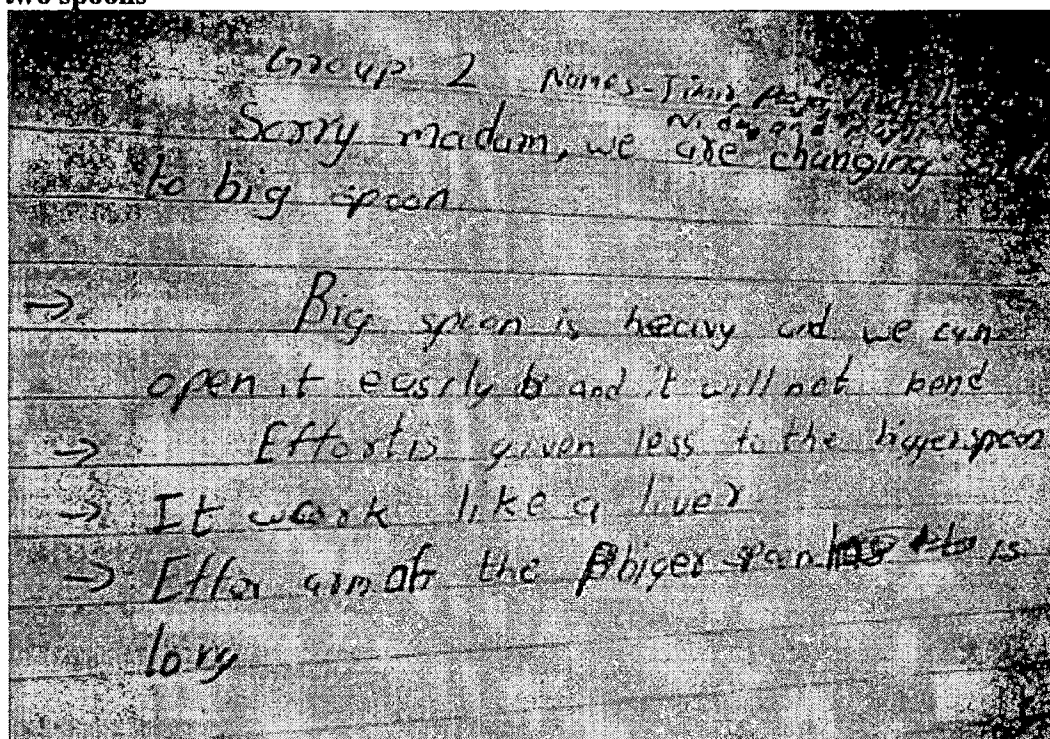 two spoons
Group 2 Names-Jimi
Nida and
Sorry madam, we are changing
to big spoon
→ Big spoon is heavy and we can
open it easily b and it will not bend
→ Effort is given less to the biggerspoon
→ It work like a liver
→ Effor arm of the Bbiger is
long